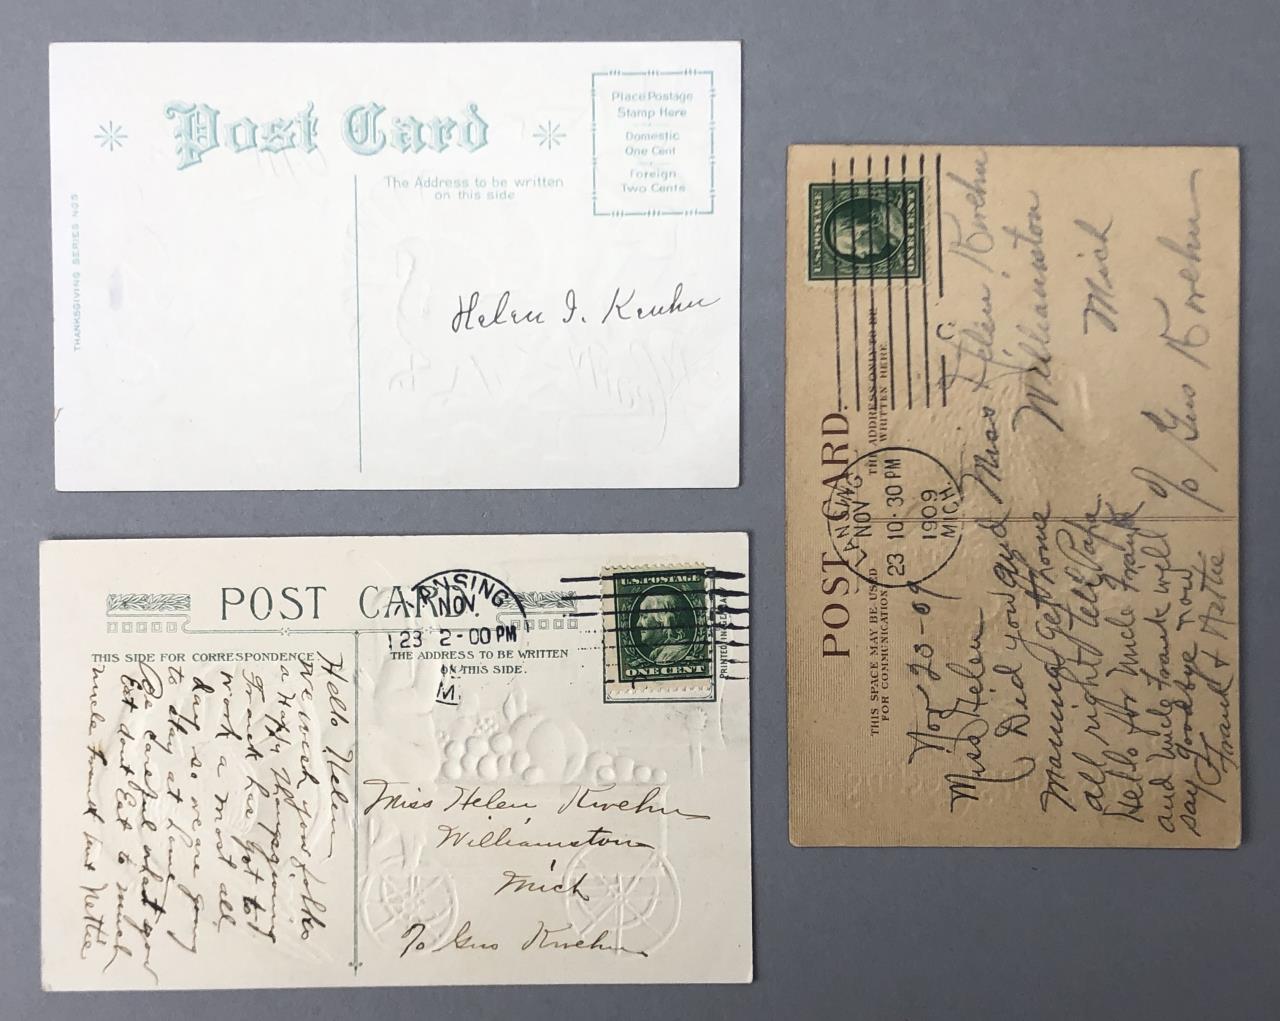 Post Card
The Address to be written
on this side
Place Postage
Stamp Here
Domestic
One Cent
Foreign
Two Cents
THANKSGIVING SERIES NO5
Helen I. Kwehn
POST CARD
THIS SIDE FOR CORRESPONDENCE
THE ADDRESS TO BE WRITTEN
ON THIS SIDE.
LANSING
NOV.
23 2-00 PM
M
U.S. POSTAGE
ONE CENT
PRINTED IN GERMANY
Hello Helen
We wish your folks
a Happy Thanksgiving
Frank has got to
work a most all
day so we are going
to stay at home
Be careful what you
Eat dont Eat to much
uncle Frank aunt Nettie
Miss Helen Kwehn
Williamston
Mich
c/o Gus Kwehn
POST CARD.
THIS SPACE MAY BE USED
FOR COMMUNICATION
THE ADDRESS ONLY TO BE
WRITTEN HERE
U.S. POSTAGE
ONE CENT
LANSING
NOV
23 10·30 PM
1909
MICH.
Nov 23-09
Miss Helen
Did you and
Mamma get home
all right tell Papa
Hello for Uncle Frank
and Uncle Frank well
say goodbye now
Frank & Nettie
Miss Helen Kwehn
Williamston
Mich
c/o Gus Kwehn